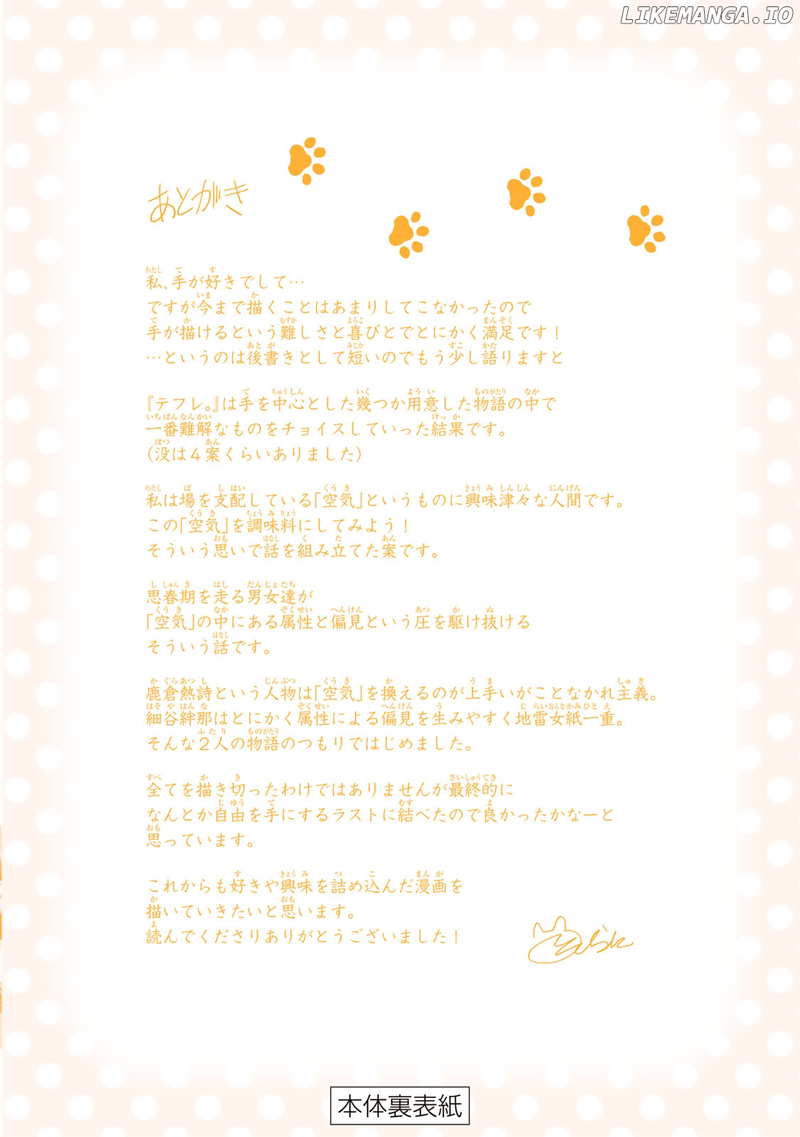 LIKEMANGA.IO
あとがき
私、手が好きでして…
ですが今まで描くことはあまりしてこなかったので
手が描けるという難しさと喜びとでとにかく満足です！
…というのは後書きとして短いのでもう少し語りますと
『テフレ。』は手を中心とした幾つか用意した物語の中で
一番難解なものをチョイスしていった結果です。
（没は４案くらいありました）
私は場を支配している「空気」というものに興味津々な人間です。
この「空気」を調味料にしてみよう！
そういう思いで話を組み立てた案です。
思春期を走る男女達が
「空気」の中にある属性と偏見という圧を駆け抜ける
そういう話です。
鹿倉熱詩という人物は「空気」を換えるのが上手いがことなかれ主義。
細谷絆那はとにかく属性による偏見を生みやすく地雷女紙一重。
そんな２人の物語のつもりではじめました。
全てを描き切ったわけではありませんが最終的に
なんとか自由を手にするラストに結べたので良かったかなーと
思っています。
これからも好きや興味を詰め込んだ漫画を
描いていきたいと思います。
読んでくださりありがとうございました！
本体裏表紙